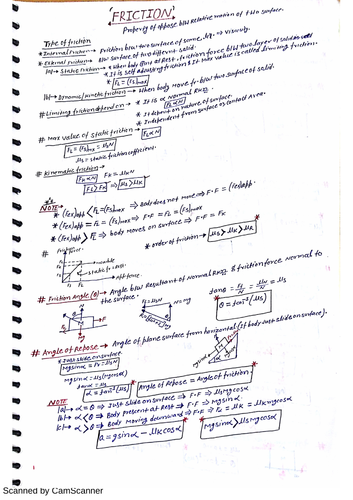 "FRICTION"
Property of oppose b/w Relative motion of two surface.
Type of friction
* Internal Friction → Friction b/w two surface of some. eg. → viscosity.
* External Friction → B/w surface of two different solid.
|a| → Static Friction → * When body @ Rest. friction force b/w two layer of solid
* It is self Adjusting friction & It max value is called limiting friction.
* FL = (Fs)max
|b| → Dynamic/kinetic friction → when Body move b/w two surface of solid.
# Limiting friction depend on → * It is ∝ Normal Rxn. FL ∝ N
* It depend on nature of surface.
* Independent from surface or contact Area.
# Max value of static friction → FL ∝ N
FL = (Fs)max = μsN
μs = static friction coefficient.
# Kinematic friction →
FK ∝ N FK = μKN
FS > FK ⇒ μs > μK
NOTE →
* (Fex)app < FL = (Fs)max ⇒ body does not move ⇒ F.F = (Fex)app
* (Fex)app = FL = (Fs)max ⇒ F.F = FL = (Fs)max
* (Fex)app > FL ⇒ body moves on surface ⇒ F.F = FK
* order of friction → μs > μK > μR
# Friction Angle (θ) → Angle b/w Resultant of Normal Rxn & friction force Normal to
the surface.
tanθ = FL/N = μsN/N = μs
θ = tan⁻¹(μs)
# Angle of Repose → Angle of plane surface from horizontal (if body Just slide on surface).
* Just slide on surface
Mgsinα = FL = μsN
Mgsinα = μs(mgcosα)
tanα = μs
α = tan⁻¹(μs)
Angle of Repose = Angle of friction
NOTE
|a| → α = θ ⇒ Just slide on surface ⇒ F.F ⇒ μsmgcosα
|b| → α < θ ⇒ Body Present at Rest ⇒ F.F ⇒ Mgsinα.
|c| → α > θ ⇒ Body moving downward ⇒ F.F ⇒ FK = μKN = μKmgcosα
a = gsinα - μKgcosα
Mgsinα > μsmgcosα
Scanned by CamScanner